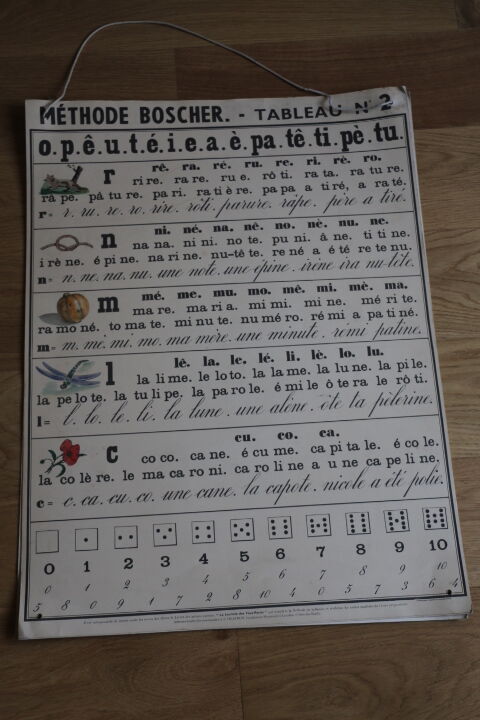 MÉTHODE BOSCHER. - TABLEAU N° 2
o. p. ê. u. t. é. i. e. a. è. pa. tê. ti. pè. tu.
r rê. ra. ré. ru. re. ri. rè. ro.
ri re. ra re. ru e. rô ti. ra ta. ra tu re.
râ pe. pâ tu re. pa ri. ra ti è re. pa pa a ti ré, a ra té.
r = r. ru. re. ro. rire. rôti. parure. râpe. père a tiré.
n ni. né. na. nê. no. nè. nu. ne.
na na. ni ni. no te. pu ni. â ne. ti ti ne.
i rè ne. é pi ne. na ri ne. nu-tê te. re né a é té re te nu.
n = n. ne. na. nu. une note. une épine. irène ira nu-tête.
m mé. me. mu. mo. mê. mi. mè. ma.
ma re. ma ri a. mi mi. mi ne. mé ri te.
ra mo né. to ma te. mi nu te. nu mé ro. ré mi a pa ti né.
m = m. mé. mi. mo. ma mère. une minute. rémi patine.
l lê. la. le. lé. li. lè. lo. lu.
la li me. le lo to. la la me. la lu ne. la pi le.
la pe lo te. la tu li pe. la pa ro le. é mi le ô te ra le rô ti.
l = l. lo. le. li. la lune. une alène. ôte ta pèlerine.
c cu. co. ca.
co co. ca ne. é cu me. ca pi ta le. é co le.
la co lè re. le ma ca ro ni. ca ro li ne a u ne ca pe li ne.
c = c. ca. cu. co. une cane. la capote. nicole a été polie.
0 1 2 3 4 5 6 7 8 9 10
0 1 2 3 4 5 6 7 8 9 10
5 8 0 9 1 7 2 8 10 4 0 5 7 3 6 4